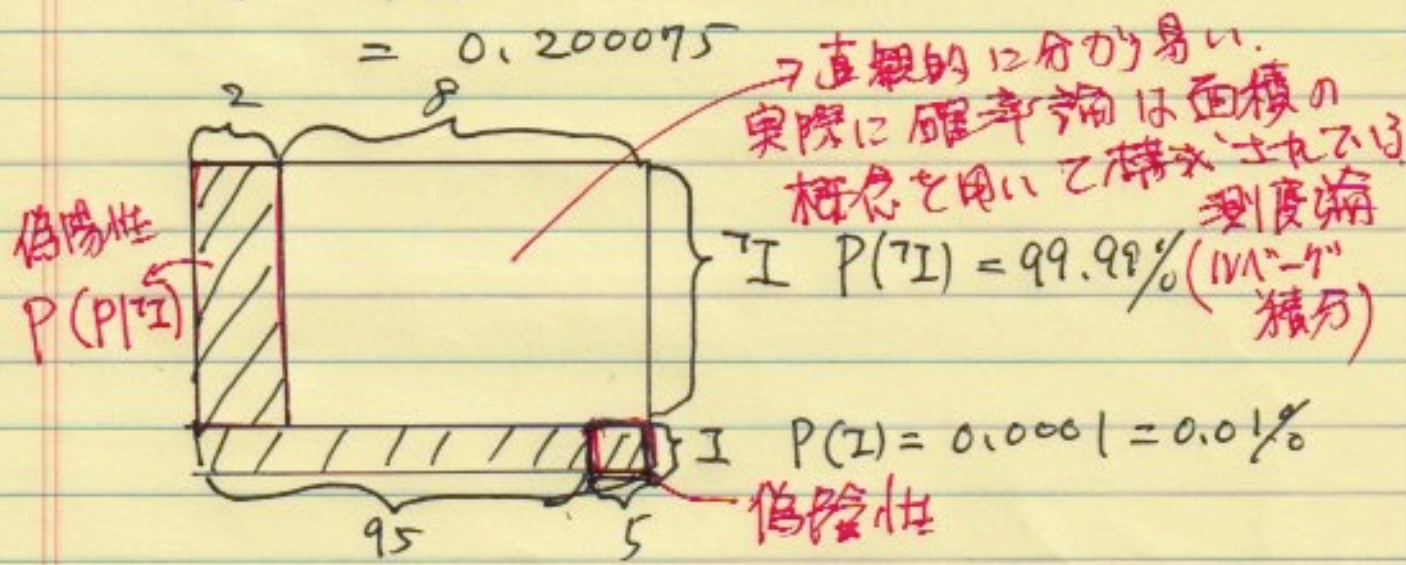 = 0.200075
2 8
→直観的に分かり易い.
実際に確率論は面積の
概念を用いて構成されている
測度論
(ルベーグ
積分)
偽陽性
P(P|¬I)
¬I P(¬I) = 99.99%
I P(I) = 0.0001 = 0.01%
95 5
偽陰性